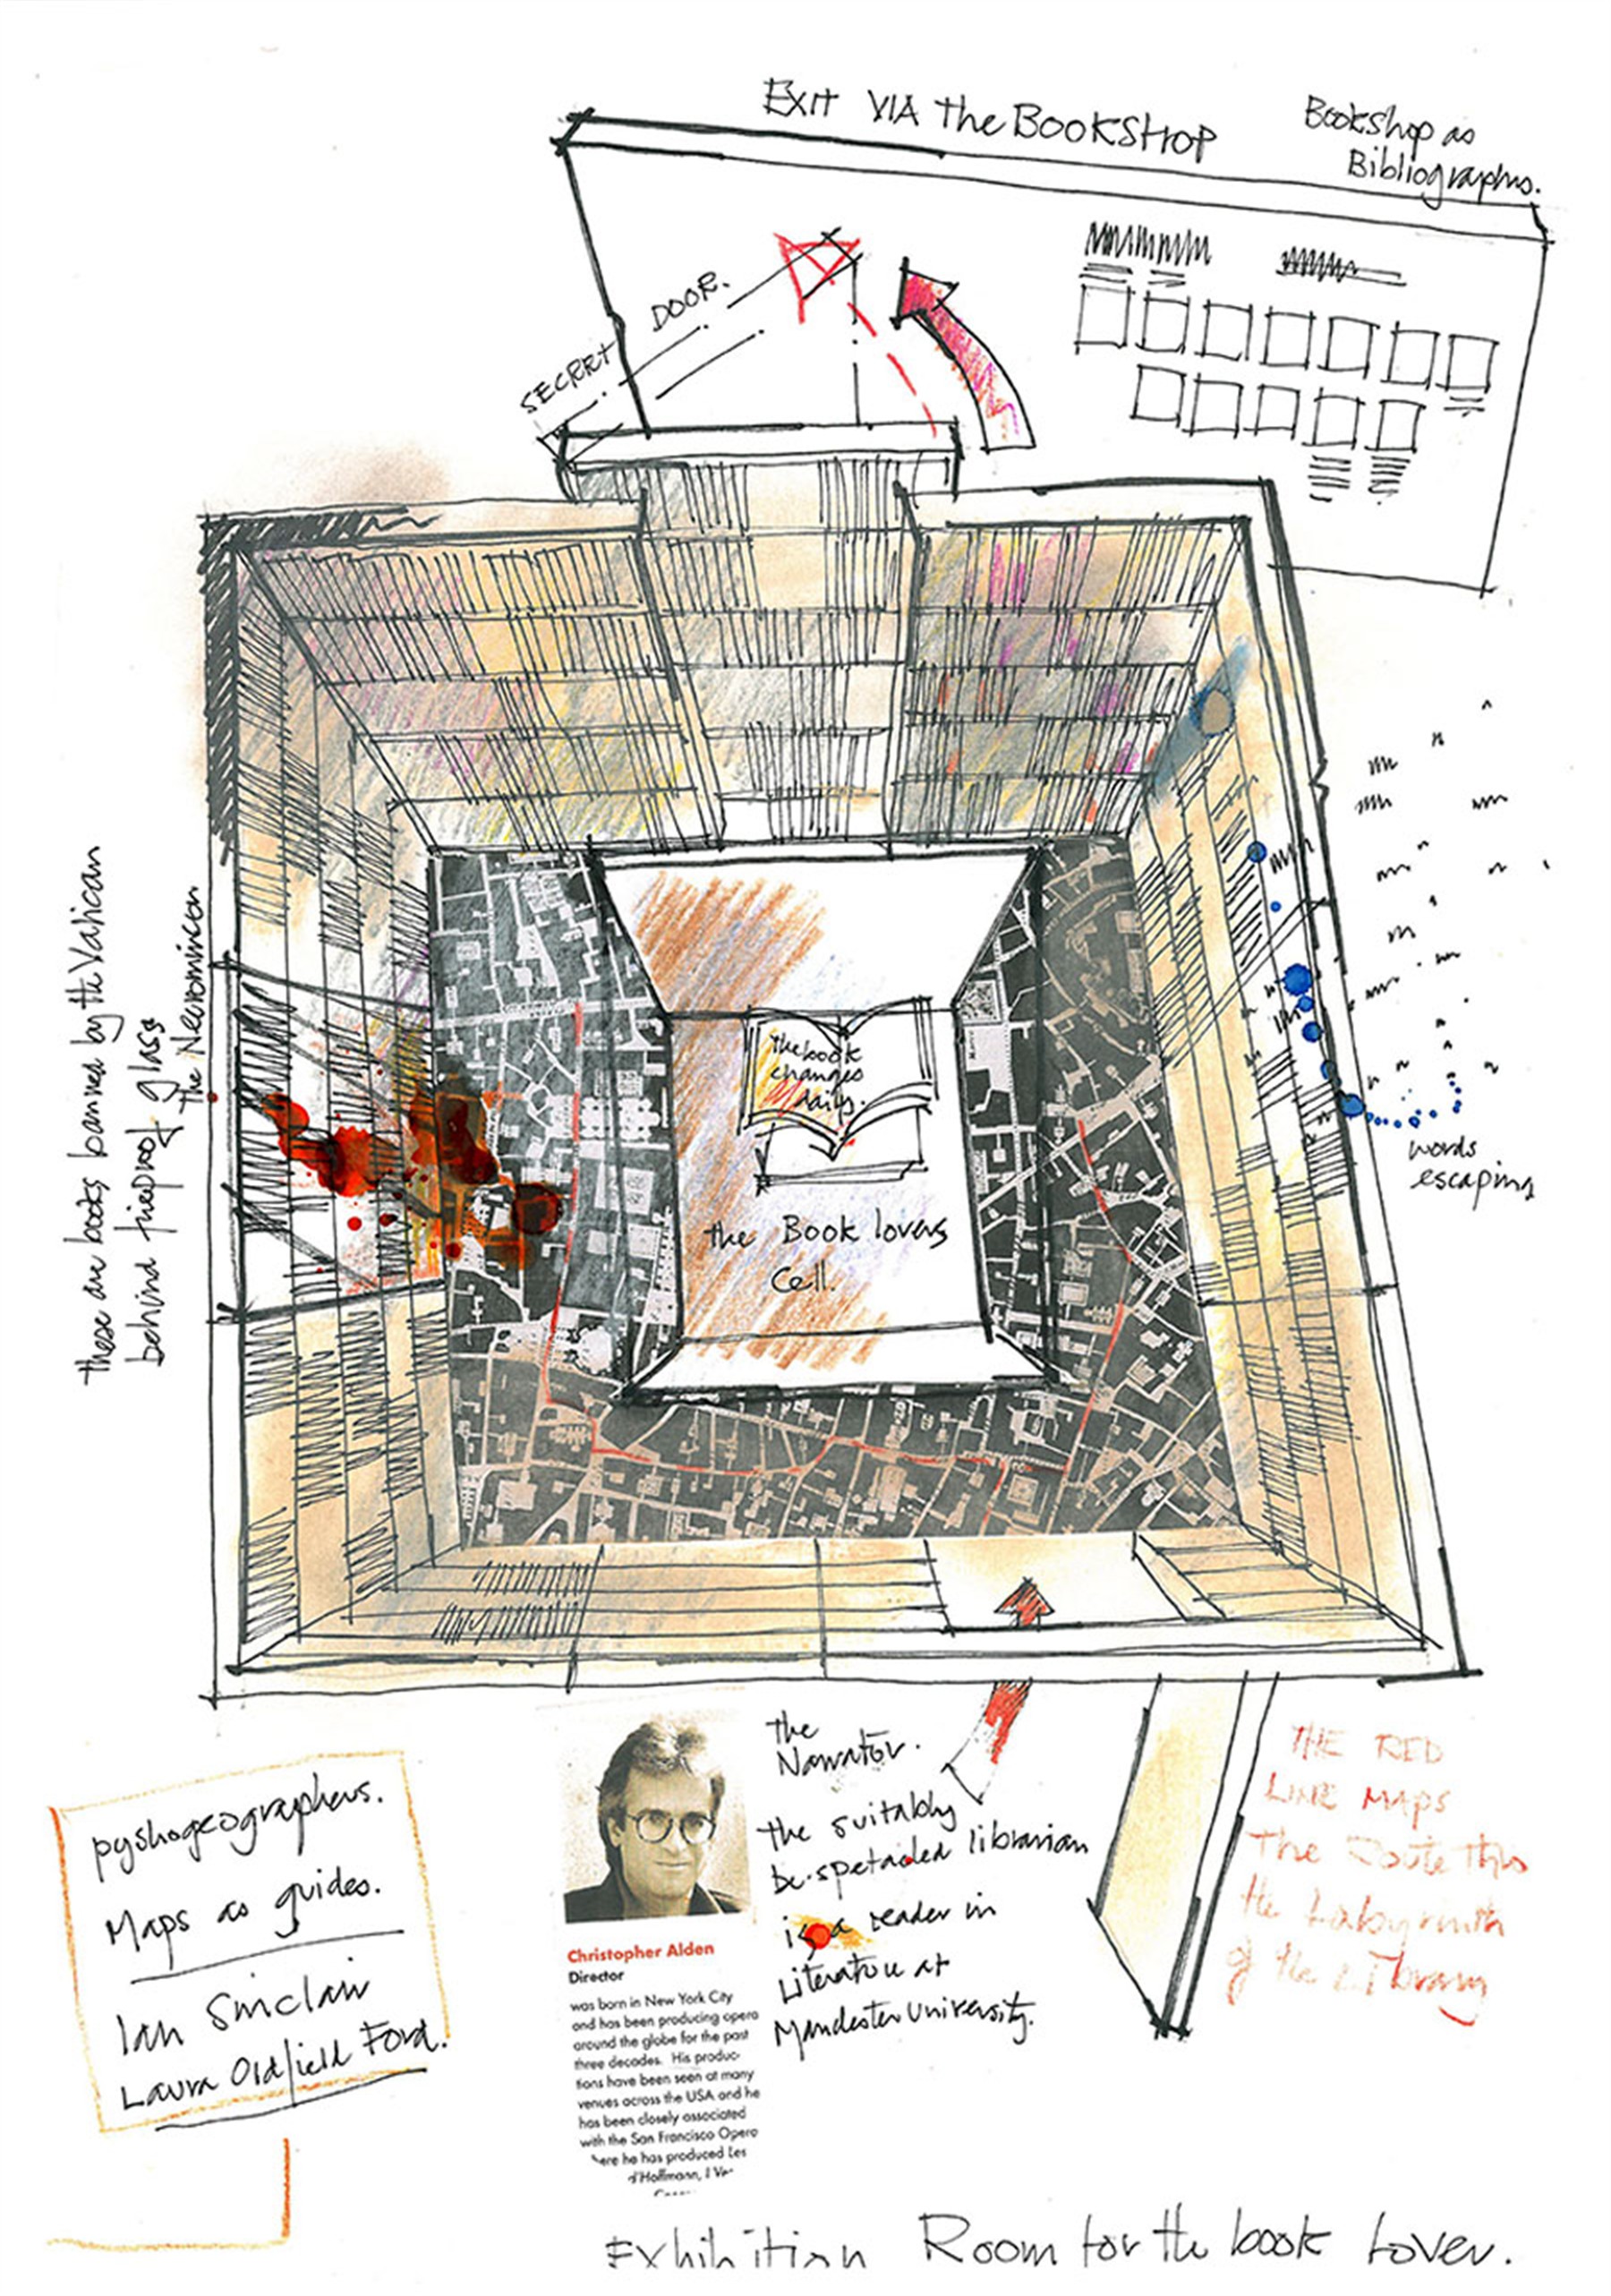 EXIT VIA the BOOKSHOP
Bookshop as
Bibliographs.
SECRET DOOR.
these are books banned by the Vatican
behind fireproof glass
the Necromicon
the book
changes
daily.
the Book lovers
Cell.
words
escaping
the
Narrator.
the suitably
be-spetacled librarian
is a reader in
Literature at
Manchester University.
THE RED
LINE MAPS
The Route thro
the Labyrinth
of the Library
pyshogeographers.
Maps as guides.
Ian Sinclair
Laura Oldfield Ford.
Christopher Alden
Director
was born in New York City
and has been producing opera
around the globe for the past
three decades. His produc-
tions have been seen at many
venues across the USA and he
has been closely associated
with the San Francisco Opera
here he has produced Les
d'Hoffmann, I
Exhibition Room for the book Lover.